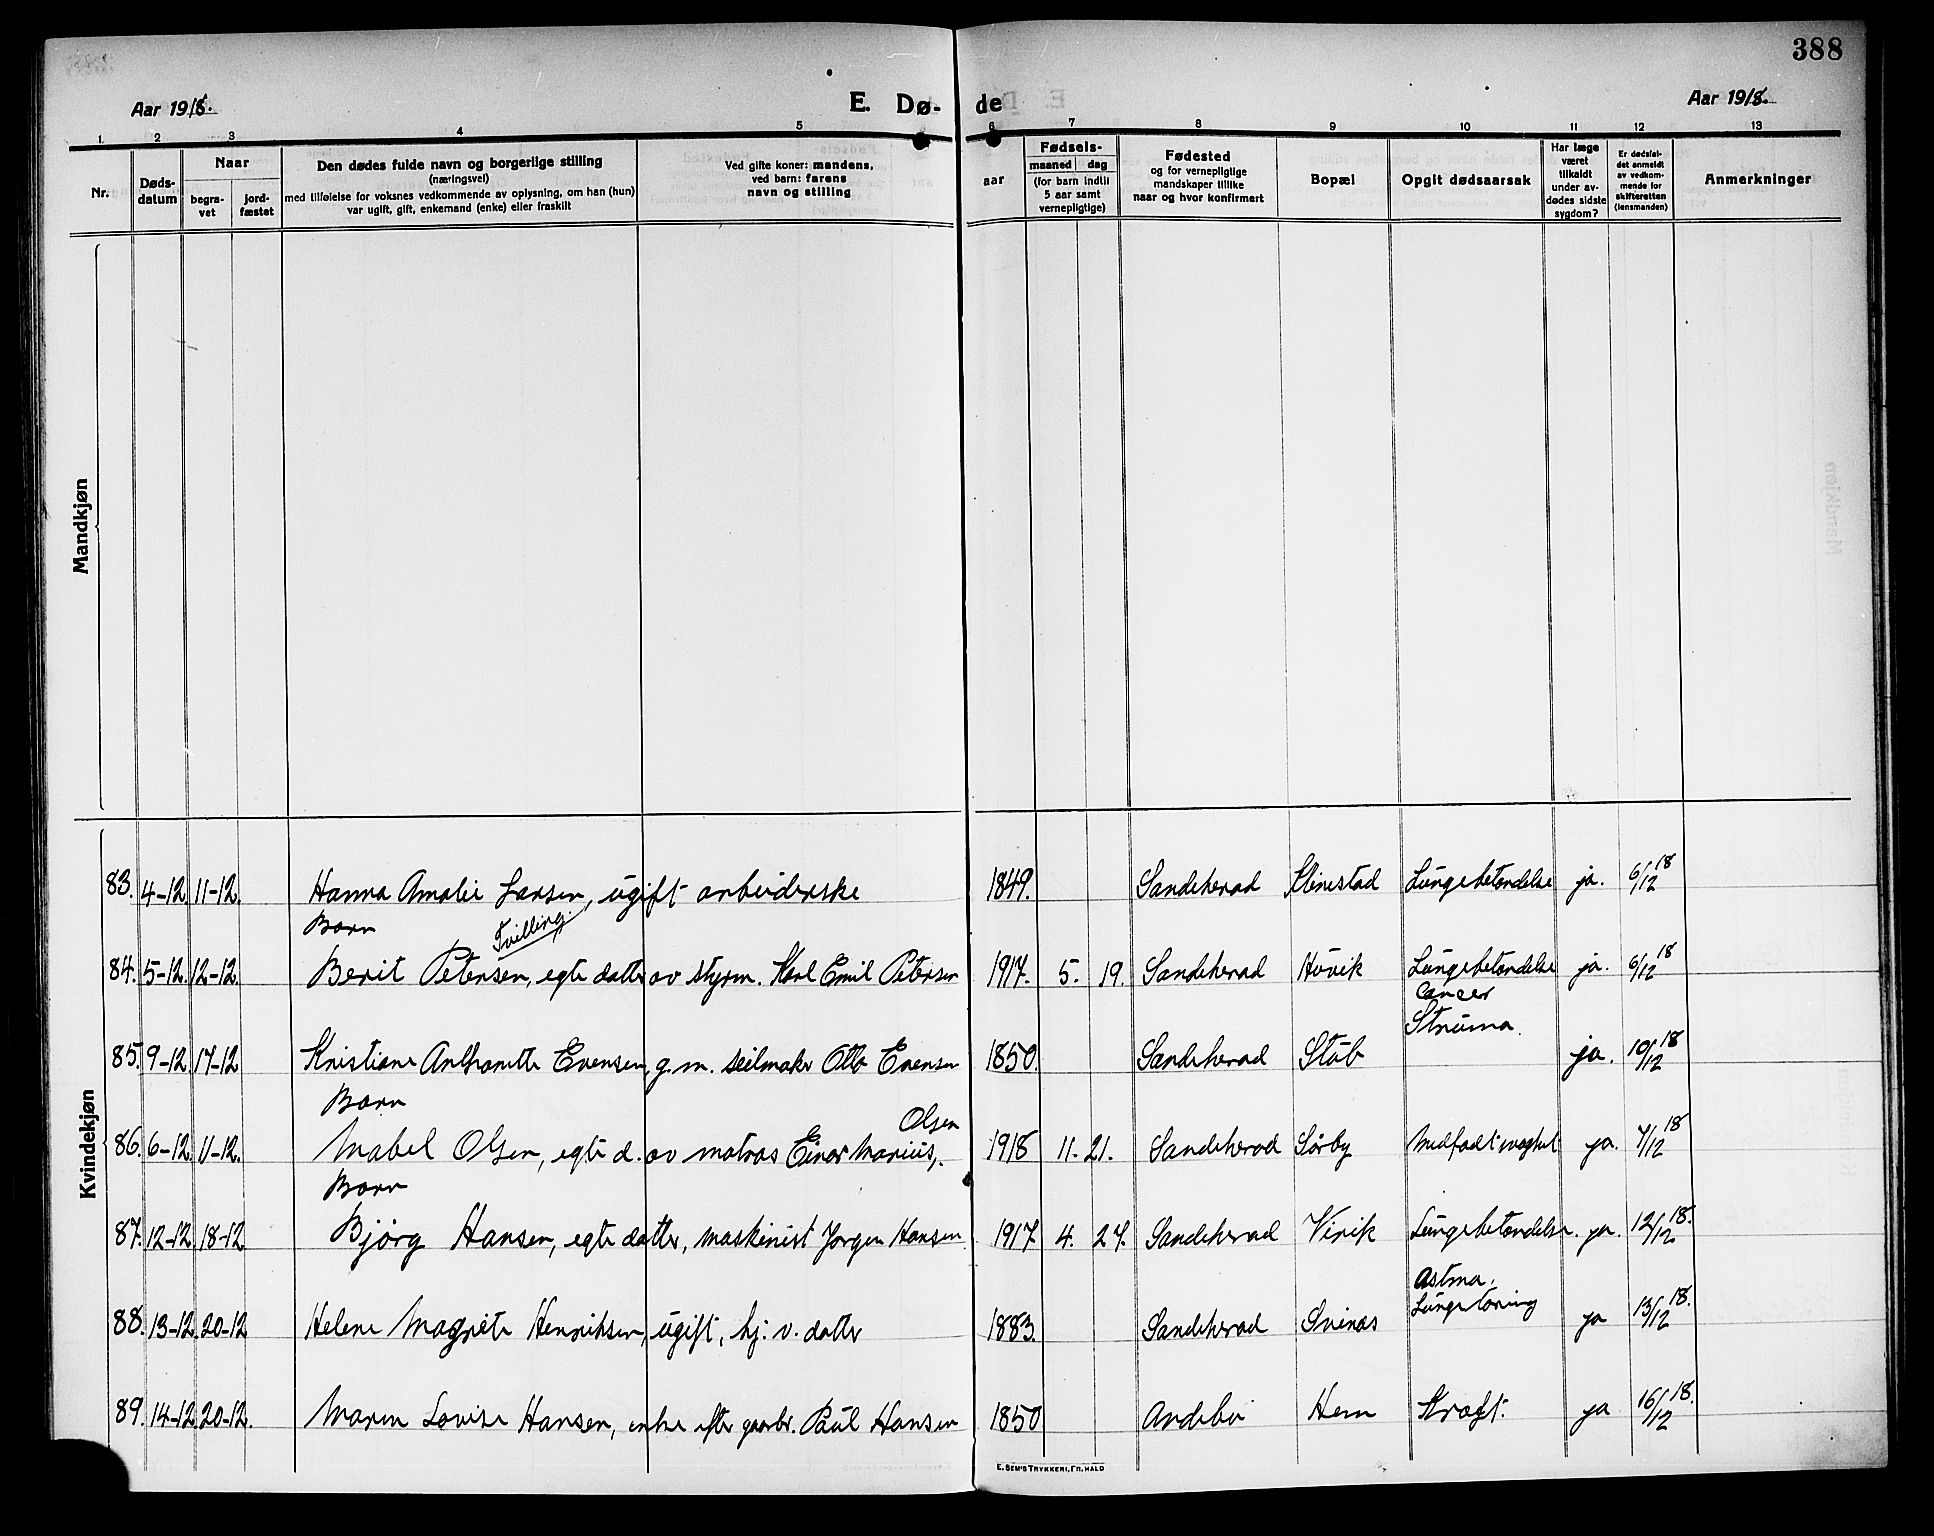 388
Aar 1918. E. Dø- de Aar 1918.
1. 2 3 4 5 6 7 8 9 10 11 12 13
Nr.
Døds-
datum
Naar
begra-
vet
jord-
fæstet
Den dødes fulde navn og borgerlige stilling
(næringsvei)
med tilføielse for voksnes vedkommende av oplysning, om han (hun)
var ugift, gift, enkemand (enke) eller fraskilt
Ved gifte koner: mandens,
ved barn: farens
navn og stilling
aar
Fødsels-
maaned dag
(for barn indtil
5 aar samt
vernepligtige)
Fødested
og for vernepligtige
mandskaper tillike
naar og hvor konfirmert
Bopæl
Opgit dødsaarsak
Har læge
været
tilkaldt
under av-
dødes sidste
sygdom?
Er dødsfal-
det anmeldt
av vedkom-
mende for
skifteretten
(lensmanden)
Anmerkninger
Mandkjøn
Kvindekjøn
83. 4-12. 11-12. Hanna Amalie Larsen, ugift arbeiderske 1849. Sandeherad Klinestad Lungebetændelse ja. 6/12 18
Barn
Tvilling.
84. 5-12. 12-12. Berit Petersen, egte datter av styrm. Karl Emil Petersen 1917. 5. 19. Sandeherad Huvik Lungebetændelse ja. 6/12 18
Cancer
Struma.
85. 9-12 17-12 Kristiane Anthonette Evensen, g. m. seilmaker Otto Evensen 1850. Sandeherad Stub ja. 10/12 18
Barn
Olsen
86. 6-12. 11-12. Mabel Olsen, egte d. av matros Einar Marius, 1918 11. 21. Sandeherad Sørby Medfødt svaghet ja. 7/12 18
Barn
87. 12-12. 18-12 Bjørg Hansen, egte datter, maskinist Jørgen Hansen 1917 4. 27. Sandeherad Virik Lungebetændelse. ja. 12/12 18.
Astma.
Lungetæring
88. 13-12. 20-12 Helene Magrete Henriksen, ugift, hj. v. datter 1883. Sandeherad Svinæs ja 13/12 18.
89. 14-12 20-12. Maren Lovise Hansen, enke efter gaarbr. Paul Hansen 1850 Andebu Hem Kræft. ja 16/12 18.
E. SEM'S TRYKKERI, FR. HALD